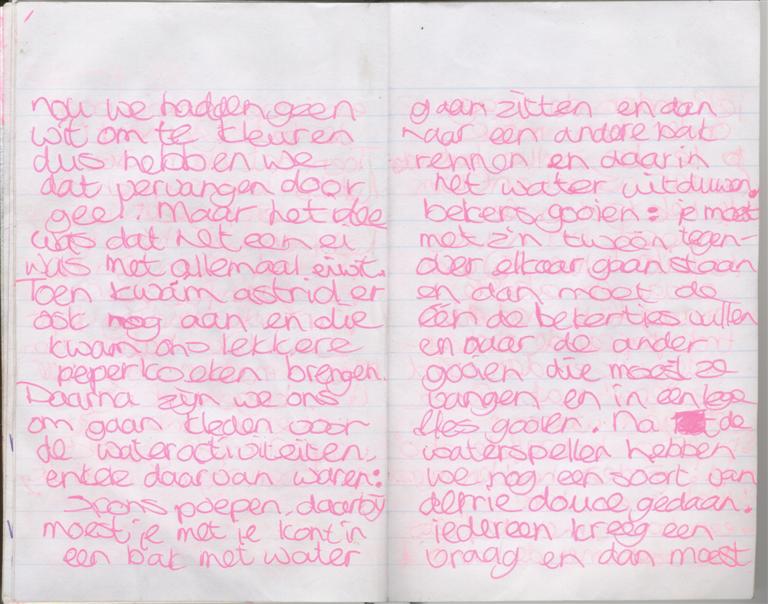 nou we hadden geen
wit om te kleuren
dus hebben we
dat vervangen door
geel. Maar het idee
was dat het een ei
was met allemaal eiwit.
Toen kwam astrid er
ook nog aan en die
kwam ons lekkere
peperkoeken brengen.
Daarna zijn we ons
om gaan kleden voor
de wateractiviteiten,
enkele daarvan waren:
spons poepen, daarbij
moest je met je kont in
een bak met water
gaan zitten en dan
naar een andere bak
rennen en daarin
het water uitduwen,
bekers gooien: je moest
met z'n tweeën tegen-
over elkaar gaan staan
en dan moet de
één de bekertjes vullen
en naar de ander
gooien die moest ze
vangen en in een lege
fles gooien. Na de
waterspellen hebben
we nog een soort van
derrie douce gedaan:
iedereen kreeg een
vraag en dan moest